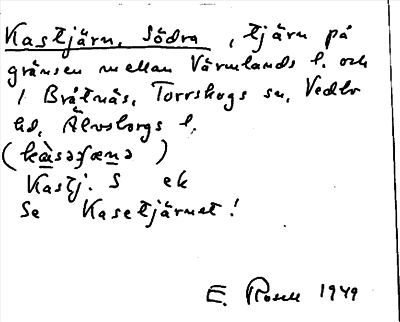 Kastjärn, Södra, tjärn på
gränsen mellan Värmlands l. och
/ Bråtnäs, Torrskogs sn, Vedbo
hd, Älvsborgs l.
(kàsəʃænə)
Kastj. S ek
Se Kasetjärnet!
E. Rosell 1949